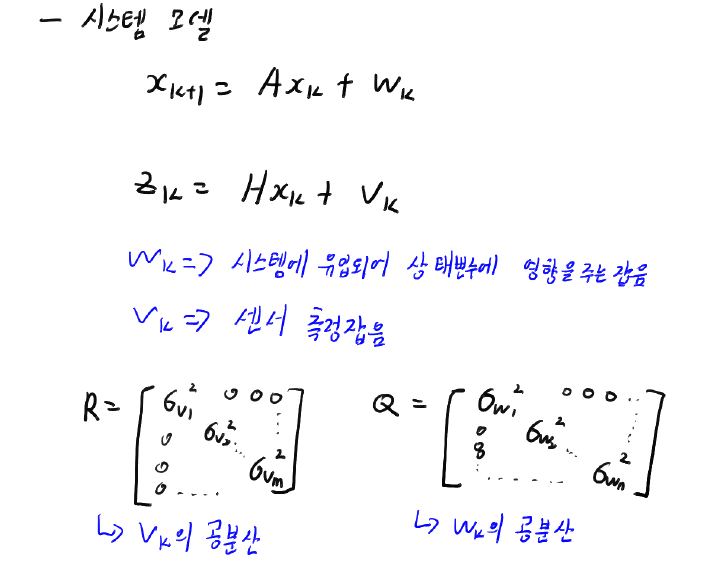 - 시스템 모델
x_{k+1} = Ax_k + w_k
z_k = Hx_k + v_k
w_k => 시스템에 유입되어 상태변수에 영향을 주는 잡음
v_k => 센서 측정잡음
R = [σ_{v1}^2 0 0 0
0 σ_{v2}^2 ...
0
0 ..... σ_{vm}^2]
Q = [σ_{w1}^2 0 0 0 ..
0 σ_{w2}^2 ...
0
: ....... σ_{wn}^2]
↳ v_k의 공분산
↳ w_k의 공분산